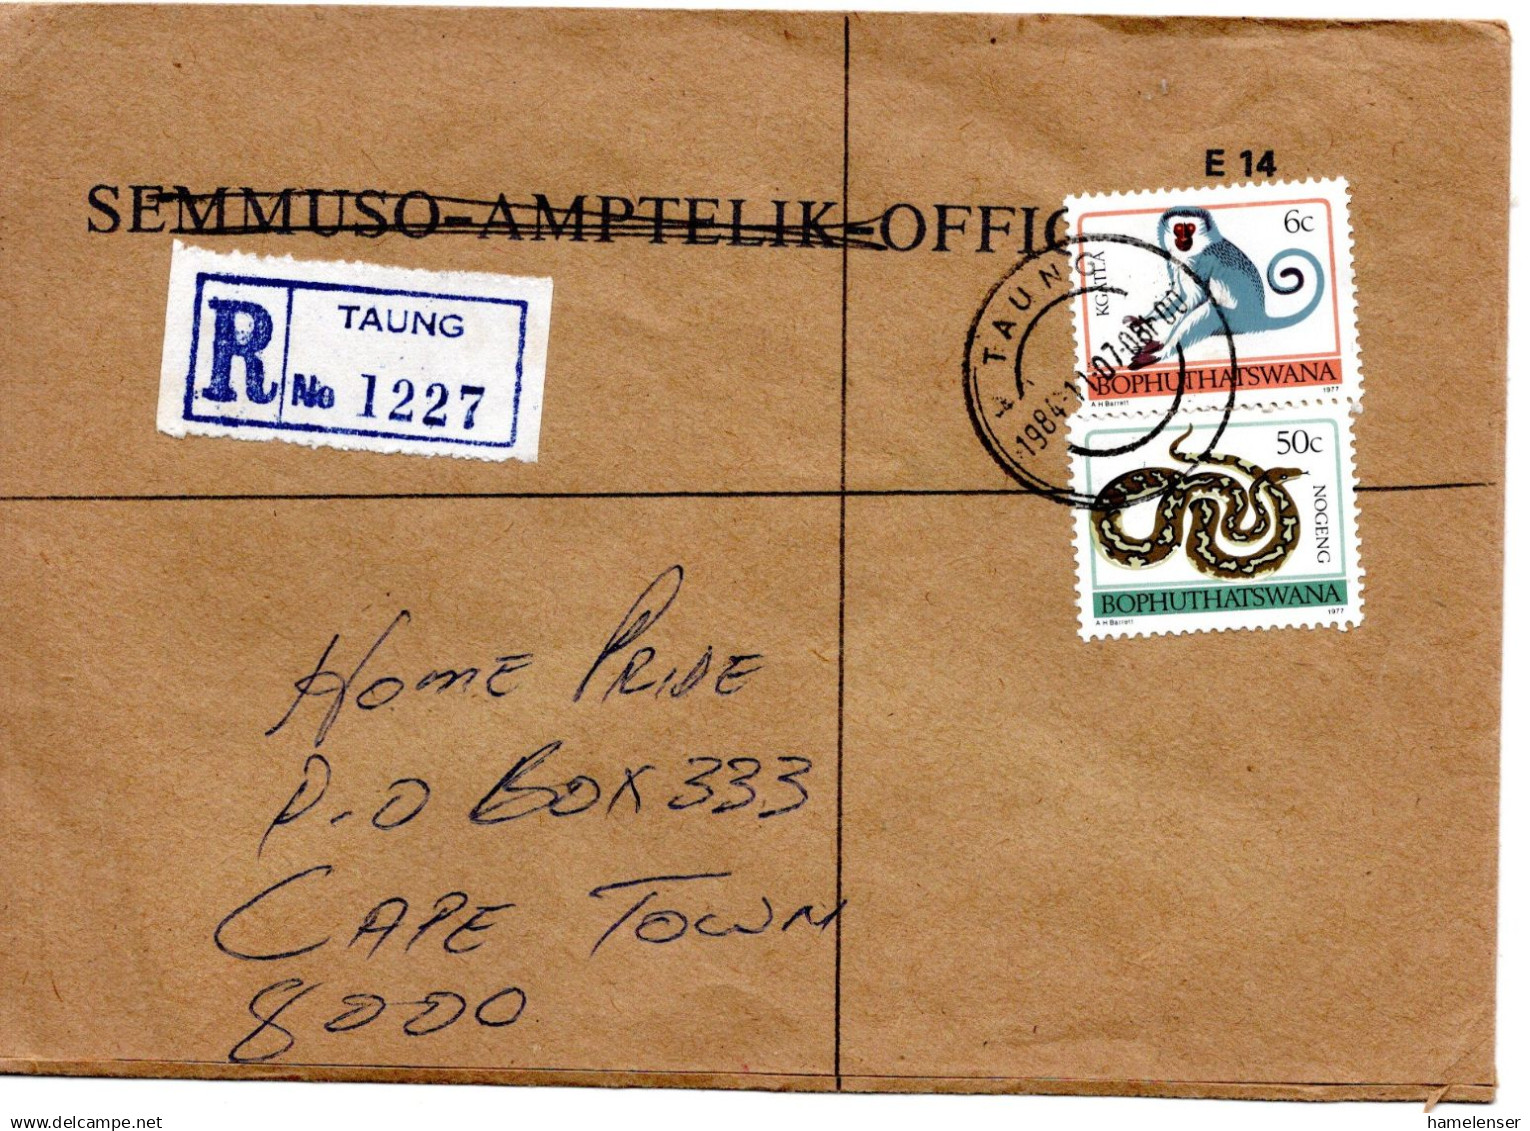 E 14
SEMMUSO-AMPTELIK-OFFIC
R
TAUNG
No 1227
TAUNG
1984-11-07-08-00
6c
KGATLA
BOPHUTHATSWANA
A H Barrett
1977
50c
NOGENG
BOPHUTHATSWANA
A H Barrett
1977
HOME PRIDE
P.O BOX 333
CAPE TOWN
8000
hamelenser